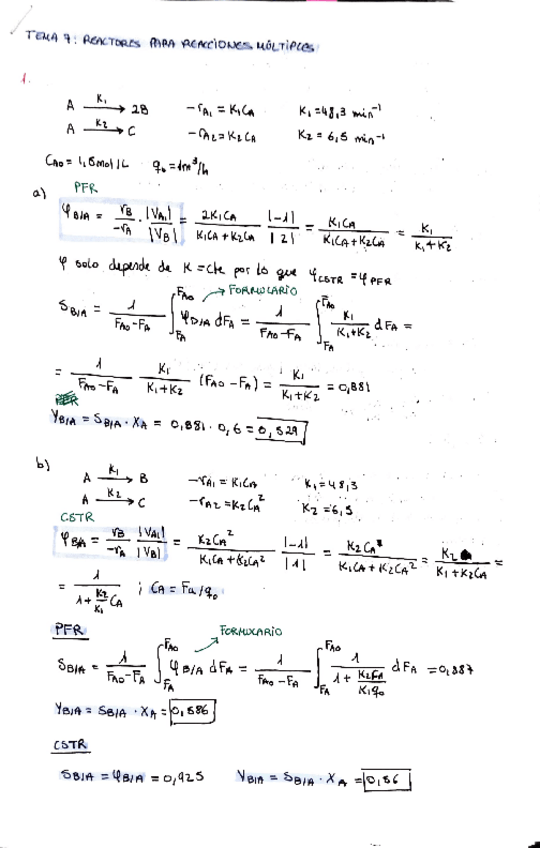 TEMA 7: REACTORES PARA REACCIONES MÚLTIPLES
1.
A —K₁→ 2B    -rA₁ = K₁CA    K₁ = 48,3 min⁻¹
A —K₂→ C    -rA₂ = K₂CA    K₂ = 6,5 min⁻¹
CA0 = 1,6 mol/L    q₀ = 1 m³/h
a) PFR
φB/A = rB/-rA · |VA₁|/|VB| = 2K₁CA/(K₁CA + K₂CA) · |-1|/|2| = K₁CA/(K₁CA + K₂CA) = K₁/(K₁+K₂)
φ solo depende de K = cte por lo que φCSTR = φPFR
→ FORMULARIO
SB/A = 1/(FA0-FA) ∫_FA^FA0 φB/A dFA = 1/(FA0-FA) ∫_FA^FA0 K₁/(K₁+K₂) dFA =
= 1/(FA0-FA) K₁/(K₁+K₂) (FA0-FA) = K₁/(K₁+K₂) = 0,881
YB/A = SB/A · XA = 0,881 · 0,6 = 0,529
b)
A —K₁→ B    -rA₁ = K₁CA    K₁ = 48,3
A —K₂→ C    -rA₂ = K₂CA²    K₂ = 6,5
CSTR
φB/A = rB/-rA |VA₁|/|VB| = K₂CA²/(K₁CA + K₂CA²) |-1|/|1| = K₂CA²/(K₁CA + K₂CA²) = K₂/(K₁+K₂CA) =
= 1/(1+ K₂/K₁ CA) ; CA = FA/q₀
PFR
→ FORMULARIO
SB/A = 1/(FA0-FA) ∫_FA^FA0 φB/A dFA = 1/(FA0-FA) ∫_FA^FA0 1/(1 + K₂FA/K₁q₀) dFA = 0,887
YB/A = SB/A · XA = 0,586
CSTR
SB/A = φB/A = 0,925    YB/A = SB/A · XA = 0,56